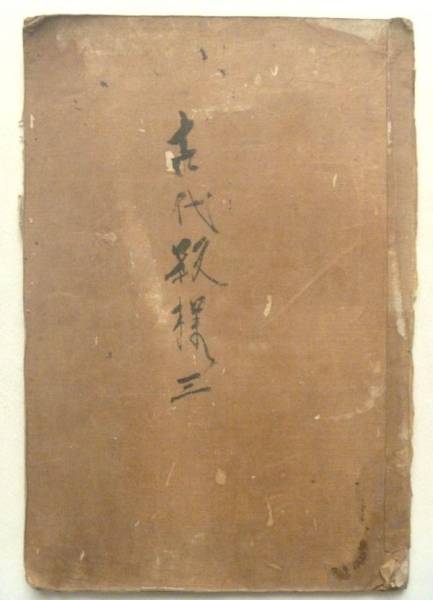 古代紋様三